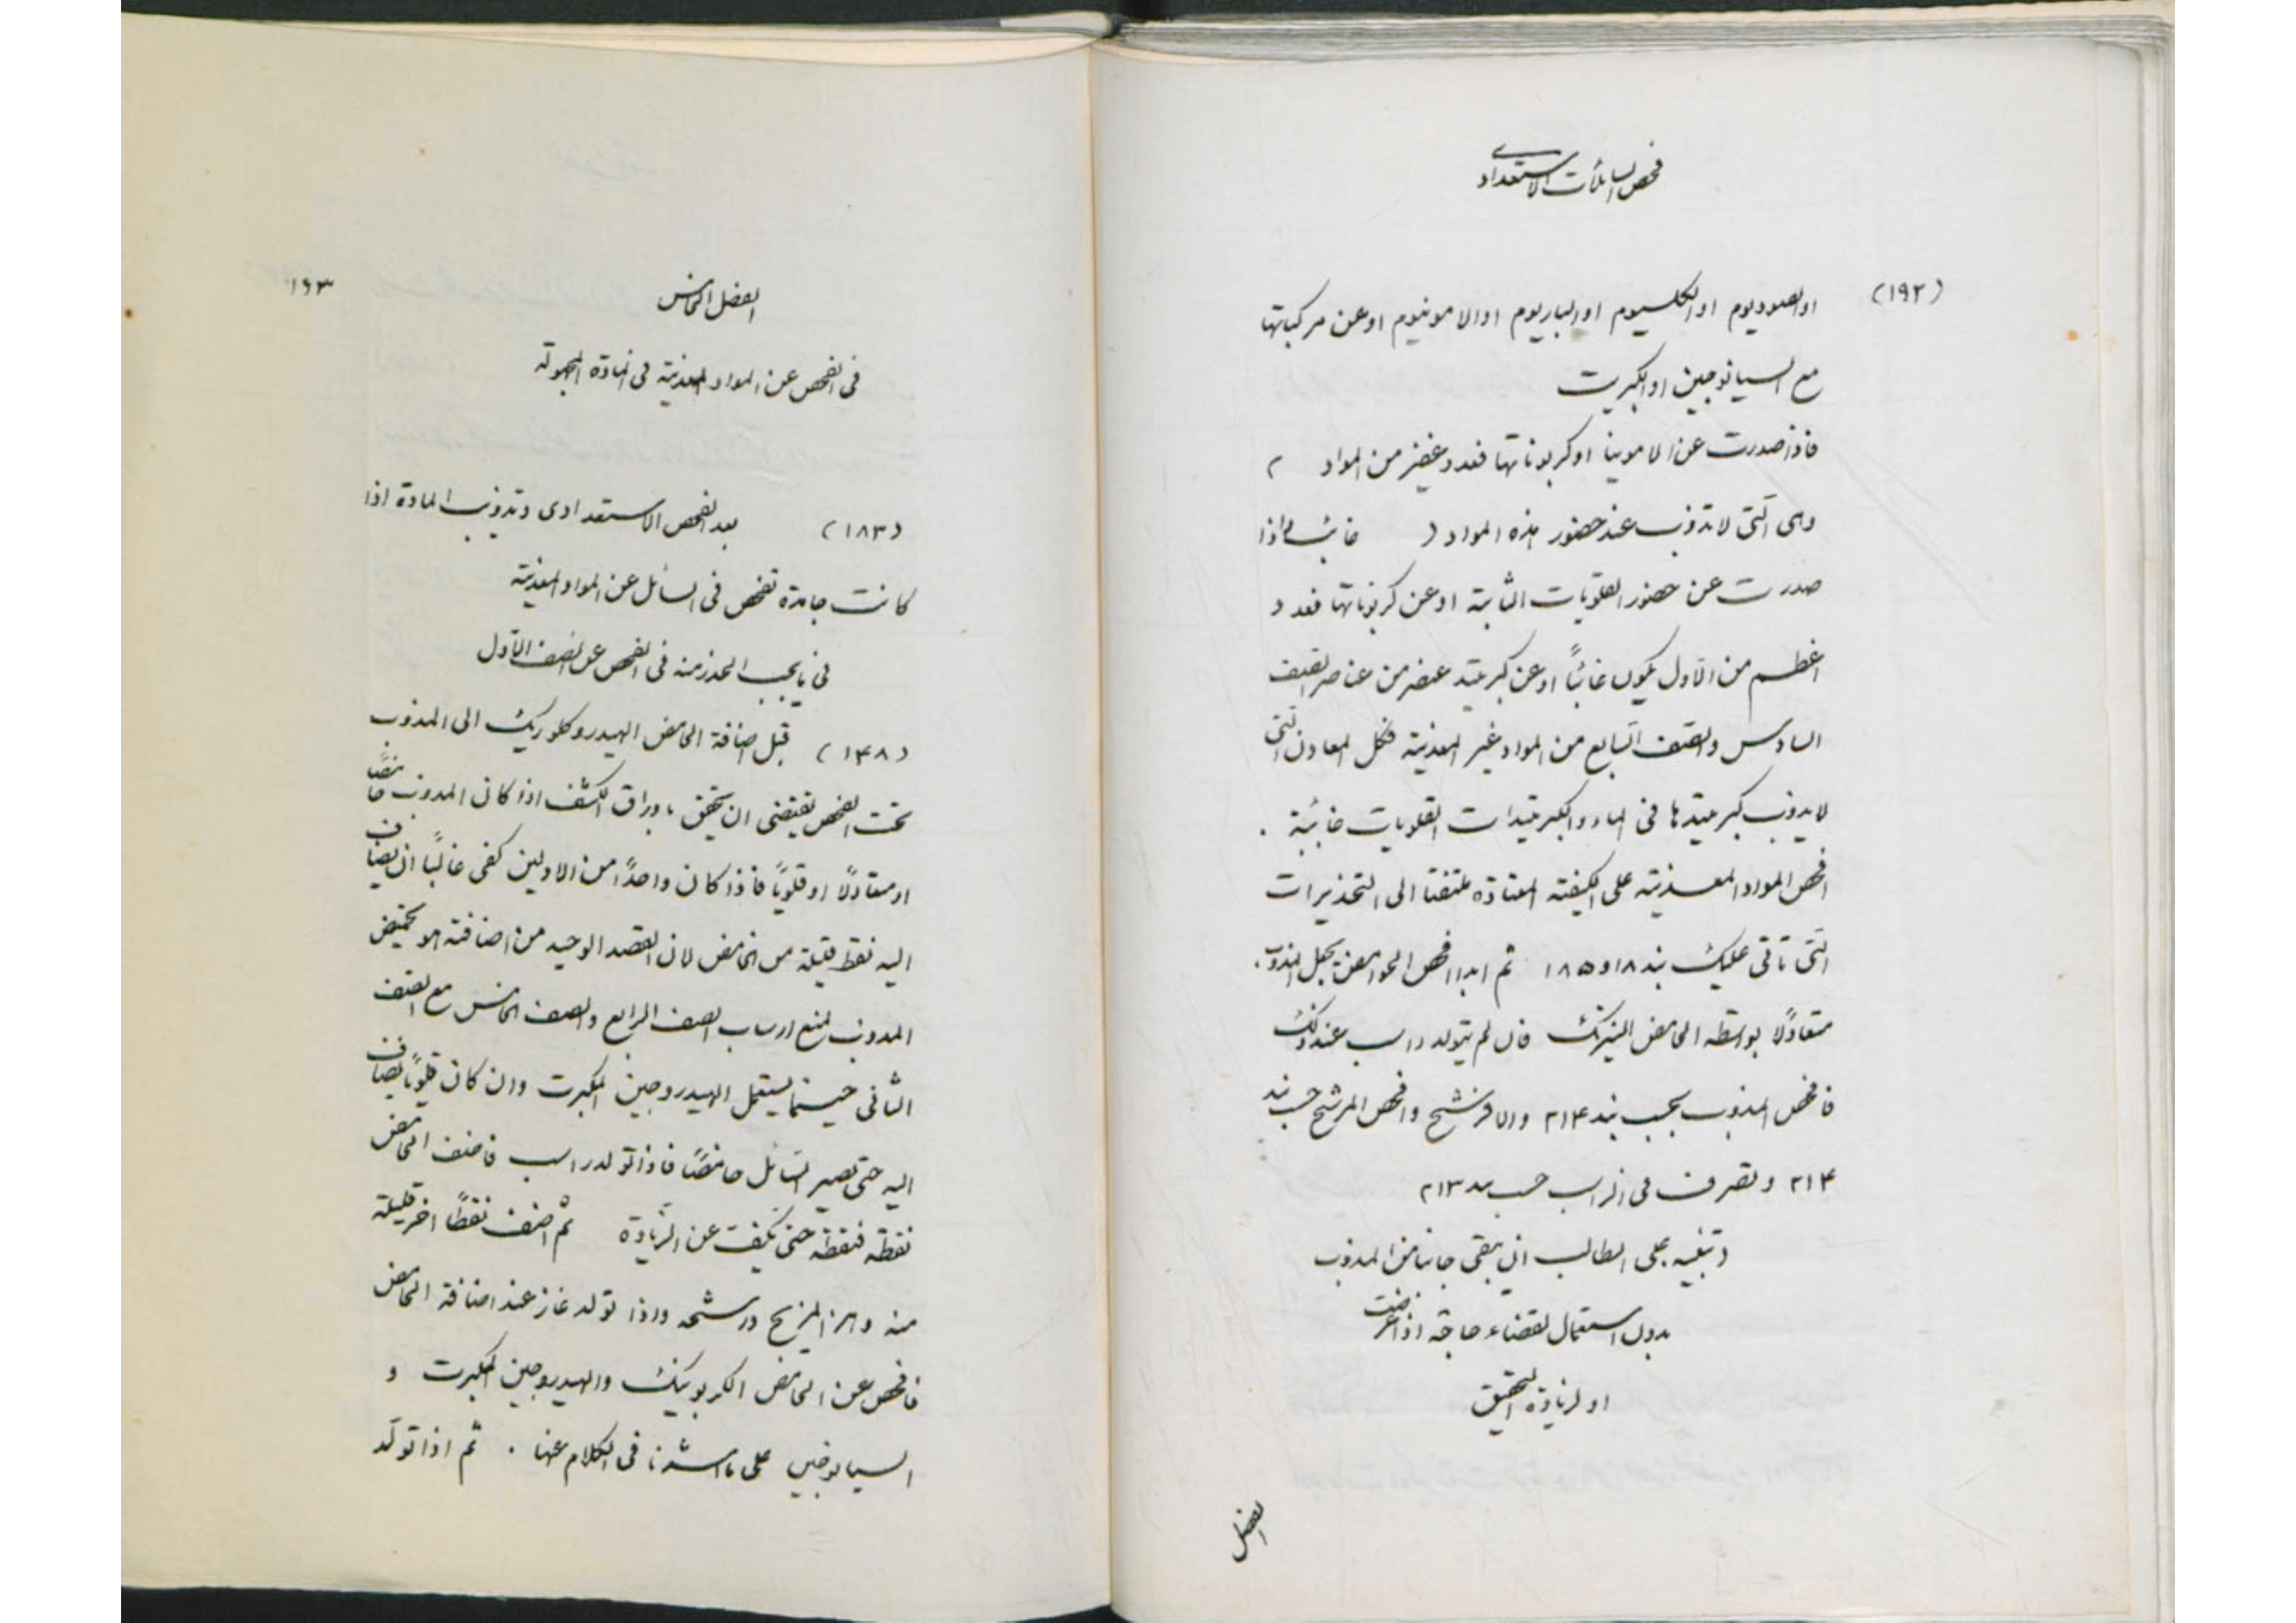 فحص السائلات الاستعدادي
(١٩٢)
او الصوديوم او الكلسيوم او الباريوم او الامونيوم او عن مركباتها
مع السيانوجين او الكبريت
فاذا صدرت عن الامونيا او كربوناتها فعدد غفير من المواد )
وهي التي لا تذوب عند حضور هذه المواد ( غائب واذا
صدرت عن حضور القلويات الثابتة او عن كربوناتها فعدد
اعظم من الاول يكون غائباً او عن كبريتيد عنصر من عناصر الصنف
السادس والصنف السابع من المواد غير المعدنية فكل المعادن التي
لا يذوب كبريتيدها في الماء والكبريتيدات القلويات غائبة .
افحص المواد المعدنية على الكيفية المعتادة ملتفتا الى التحذيرات
التي تاتي عليك بند ١٨ او ١٨٥ ثم ابدا افحص الحوامض بجعل المذوب .
متعادلًا بواسطه الحامض النيتريك فان لم يتولد راسب عند ذلك
فافحص المذوب بحسب بند ٢١٤ والا فرشح وافحص المرشح حسب بند
٢١٤ وتصرف في الراسب حسب بند ٢١٣
تنبيه على الطالب ان يبقى جانبا من المذوب
بدون استعمال لقضاء حاجة اذا عرضت
او لزيادة التحقيق
الفصل
١٩٣
الفصل الخامس
في الفحص عن المواد المعدنية في المادة المجهولة
(١٨٣) بعد الفحص الاستعدادى وتذويب المادة اذا
كانت جامدة تفحص في السائل عن المواد المعدنية
في ما يجب الحذر منه في الفحص عن الصنف الاول
(١٤٨) قبل اضافة الحامض الهيدروكلوريك الى المذوب
تحت الفحص يقتضى ان يتحقق باوراق الكشف اذا كان المذوب حامضًا
او متعادلًا او قلويًا فاذا كان واحدًا من الاولين كفى غالبًا ان يضاف
اليه نقط قليلة من الحامض لان القصد الوحيد من اضافته هو تحميض
المذوب لمنع ارساب الصنف الرابع والصنف الخامس مع الصنف
الثانى حينما يستعمل الهيدروجين المكبرت وان كان قلويًا يضاف
اليه حتى يصير السائل حامضًا فاذا تولد راسب فاضف الحامض
نقطة فنقطة حتى يكف عن الزيادة ثم اضف نقطًا اخر قليلة
منه وهز المزيج ورشحه واذا تولد غاز عند اضافة الحامض
فافحص عن الحامض الكربونيك والهيدروجين المكبرت و
السيانوجين على ما اشرنا في الكلام عنها . ثم اذا تولد